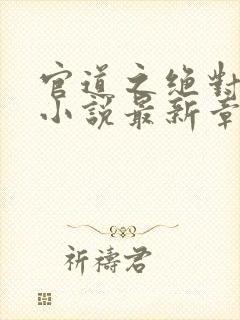 官道之绝對
小說最新章
祈禱君